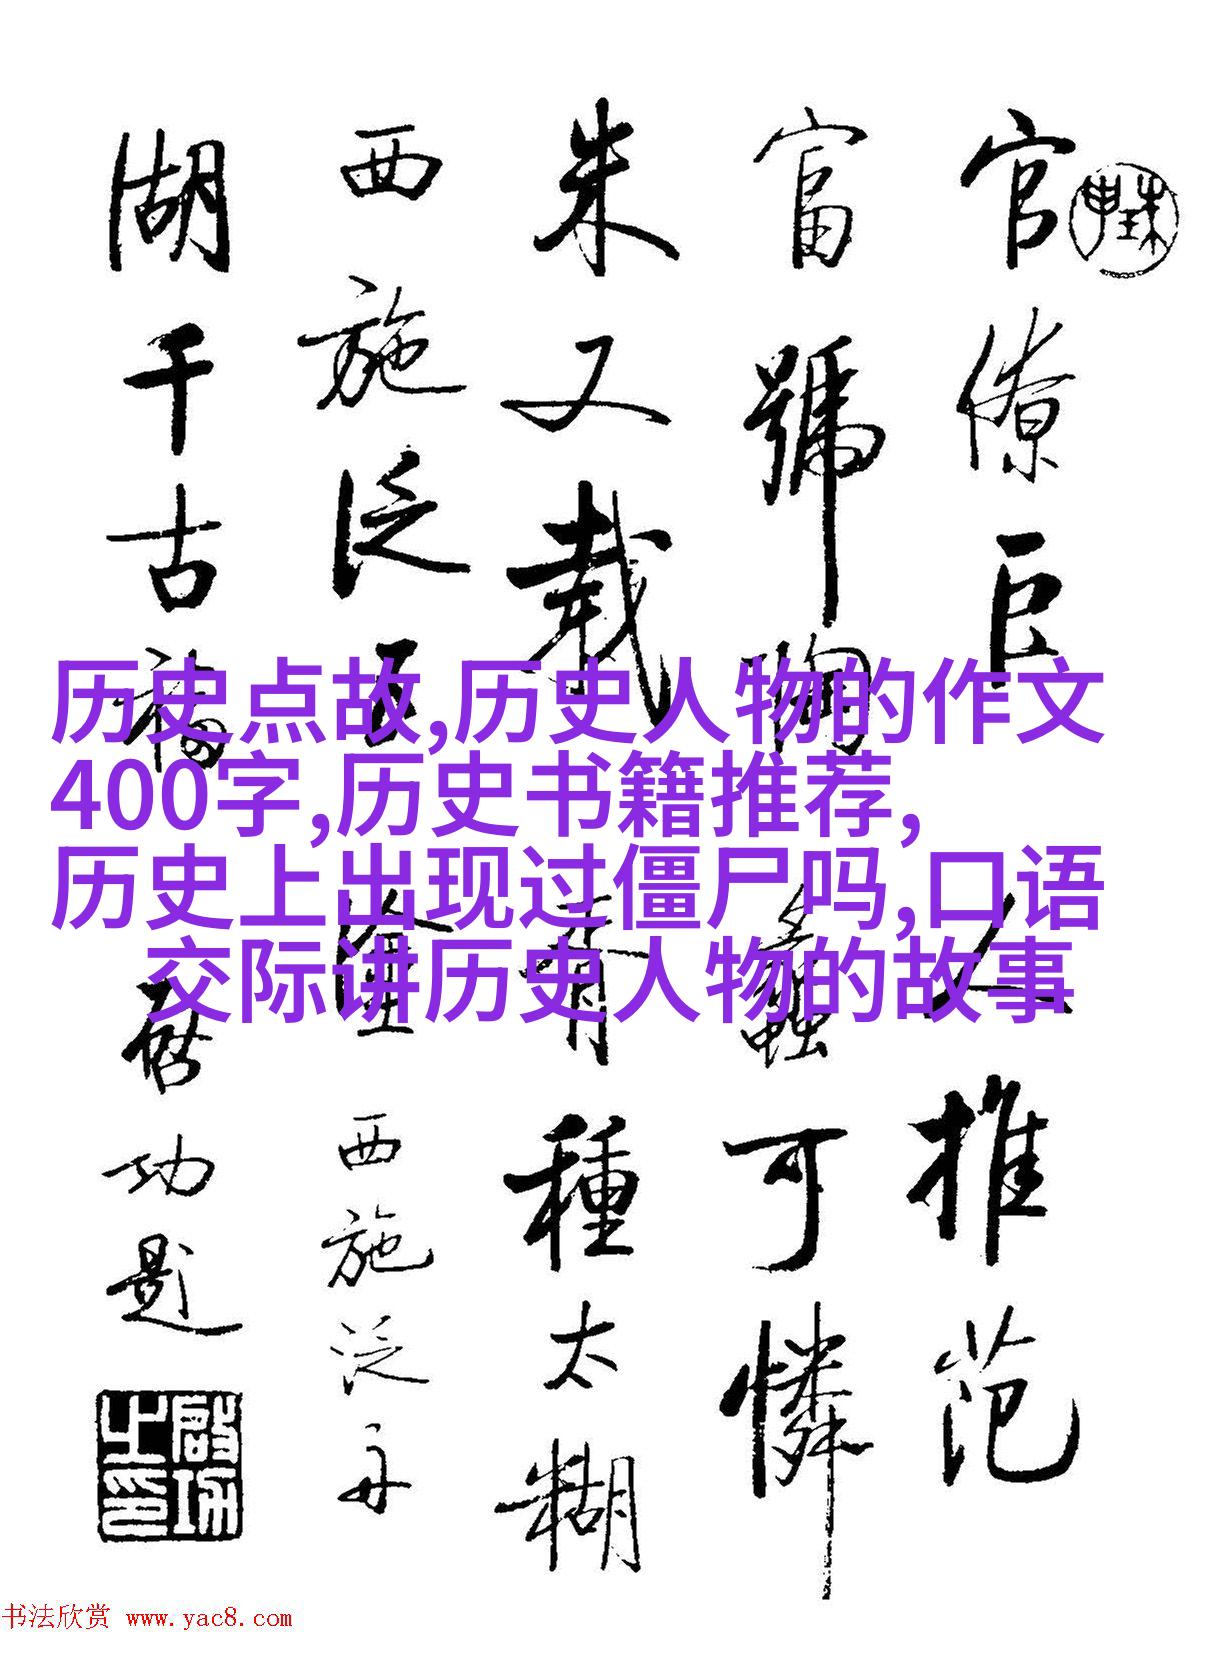 官僚巨
富號陶
朱又載
西施泛五
湖千古福
人推范
蠡可憐
種太糊
塗 西施泛舟
啟功題
啟功之印
历史点故,历史人物的作文
400字,历史书籍推荐,
历史上出现过僵尸吗,口语
交际讲历史人物的故事
书法欣赏 www.yac8.com